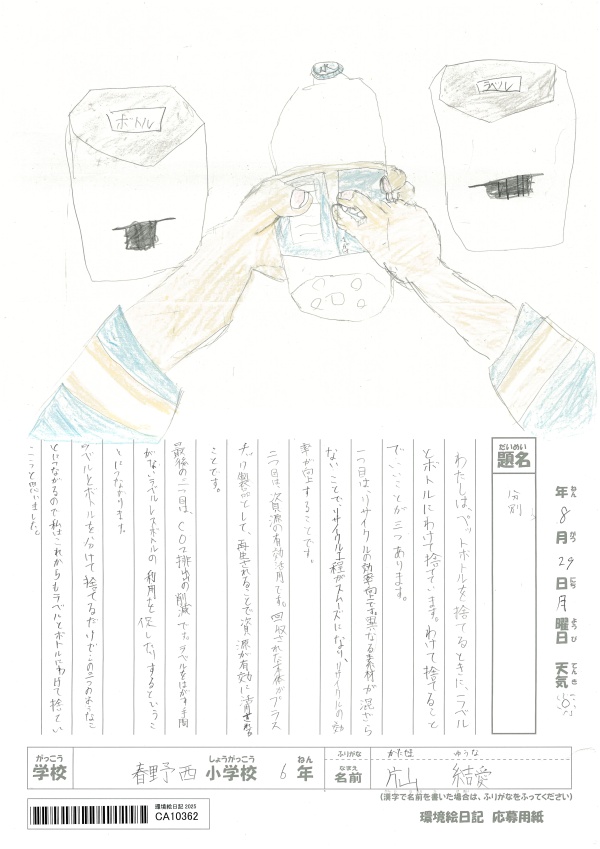 水
ボトル
ラベル
年 8月29日月曜日 天気
ねん がつ にち ようび てんき
だいめい
題名
分別
わたしは、ペットボトルを捨てるときに、ラベル
とボトルにわけて捨てています。わけて捨てること
で、いいことが三つあります。
一つ目は、リサイクルの効率向上です。異なる素材が混ざら
ないことで、リサイクル工程がスムーズになり、リサイクルの効
率が向上することです。
二つ目は、資源の有効活用です。回収された本体がプラス
チック製品として、再生されることで資源が有効に活用される
ことです。
最後の三つ目は、CO2排出の削減です。ラベルをはがす手間
がないラベルレスボトルの利用を促したりするというこ
とにつながります。
ラベルとボトルを分けて捨てるだけでこの三つのようなこ
とにつながるので私はこれからもラベルとボトルにわけて捨てい
こうと思いました。
がっこう しょうがっこう ねん
学校 春野西 小学校 6年
ふりがな ゆうな
なまえ
名前 片山 結愛
(漢字で名前を書いた場合は、ふりがなをふってください)
環境絵日記 2025
CA10362
環境絵日記 応募用紙